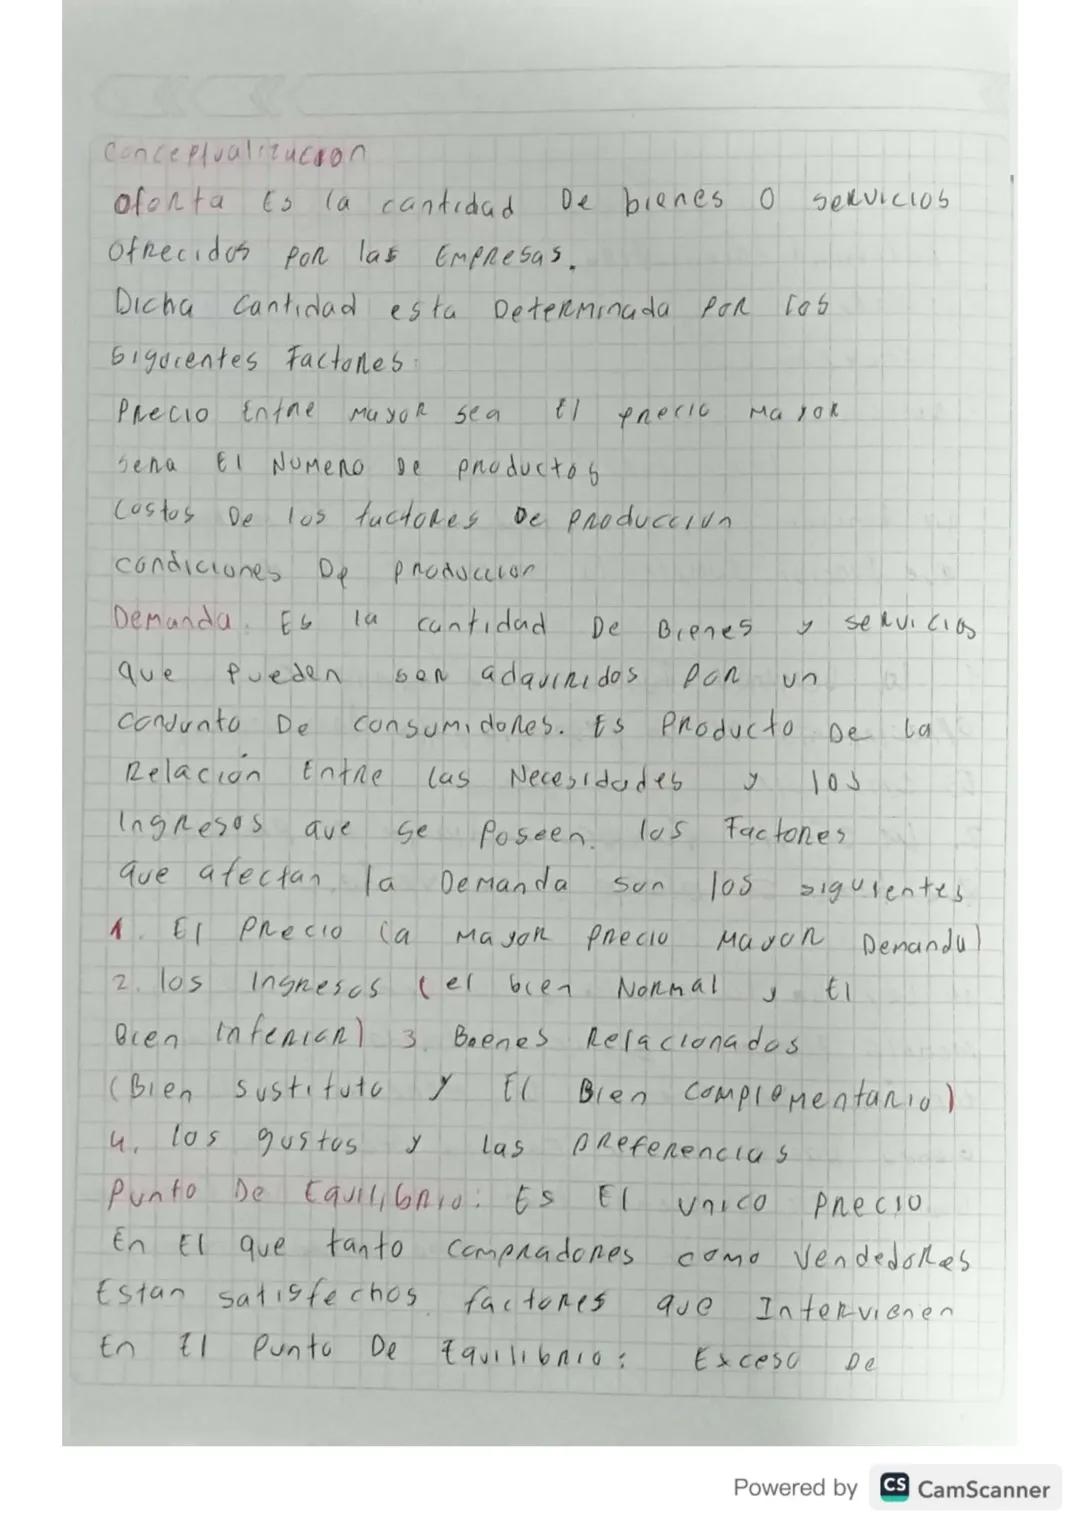 Conceptualizacion
Oferta Es la cantidad De bienes O servicios
Ofrecidos por las Empresas.
Dicha Cantidad esta Determinada Por los
Siguientes Factores:
Precio Entre Mayor sea El precio Mayor
Sera El Numero De productos
Costos De los factores De Produccion
condiciones De produccion
Demanda. Es la cantidad De Bienes y servicios
que Pueden ser adquiridos por un
Conjunto De consumidores. Es Producto De la
Relación Entre las Necesidades y los
Ingresos que se Poseen. los Factores
que afectan la Demanda son los siguientes
1. El Precio (a Mayor precio Mayor Demanda)
2. los Ingresos (el bien Normal y El
Bien Inferior) 3. Bienes Relacionados
(Bien sustituto y El Bien Complementario)
4. los gustos y las preferencias
Punto De Equilibrio: Es El unico Precio
En El que tanto compradores como Vendedores
Estan satisfechos factores que Intervienen
En El Punto De Equilibrio: Exceso De
Powered by CS CamScanner